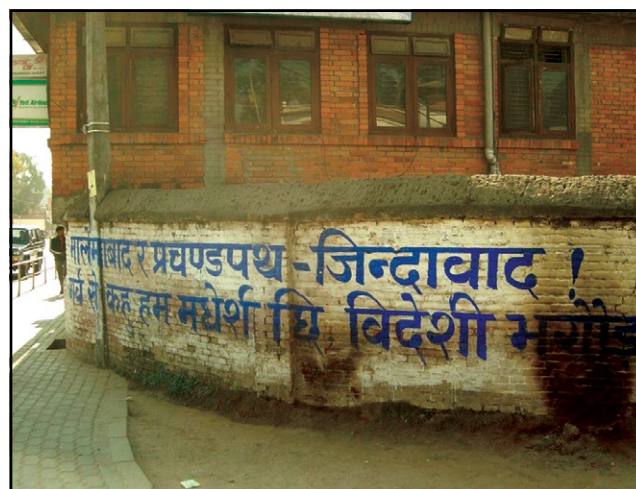 मालेमाबाद र प्रचण्डपथ - जिन्दावाद !
गर्व से कह हम मधेशी छि, विदेशी